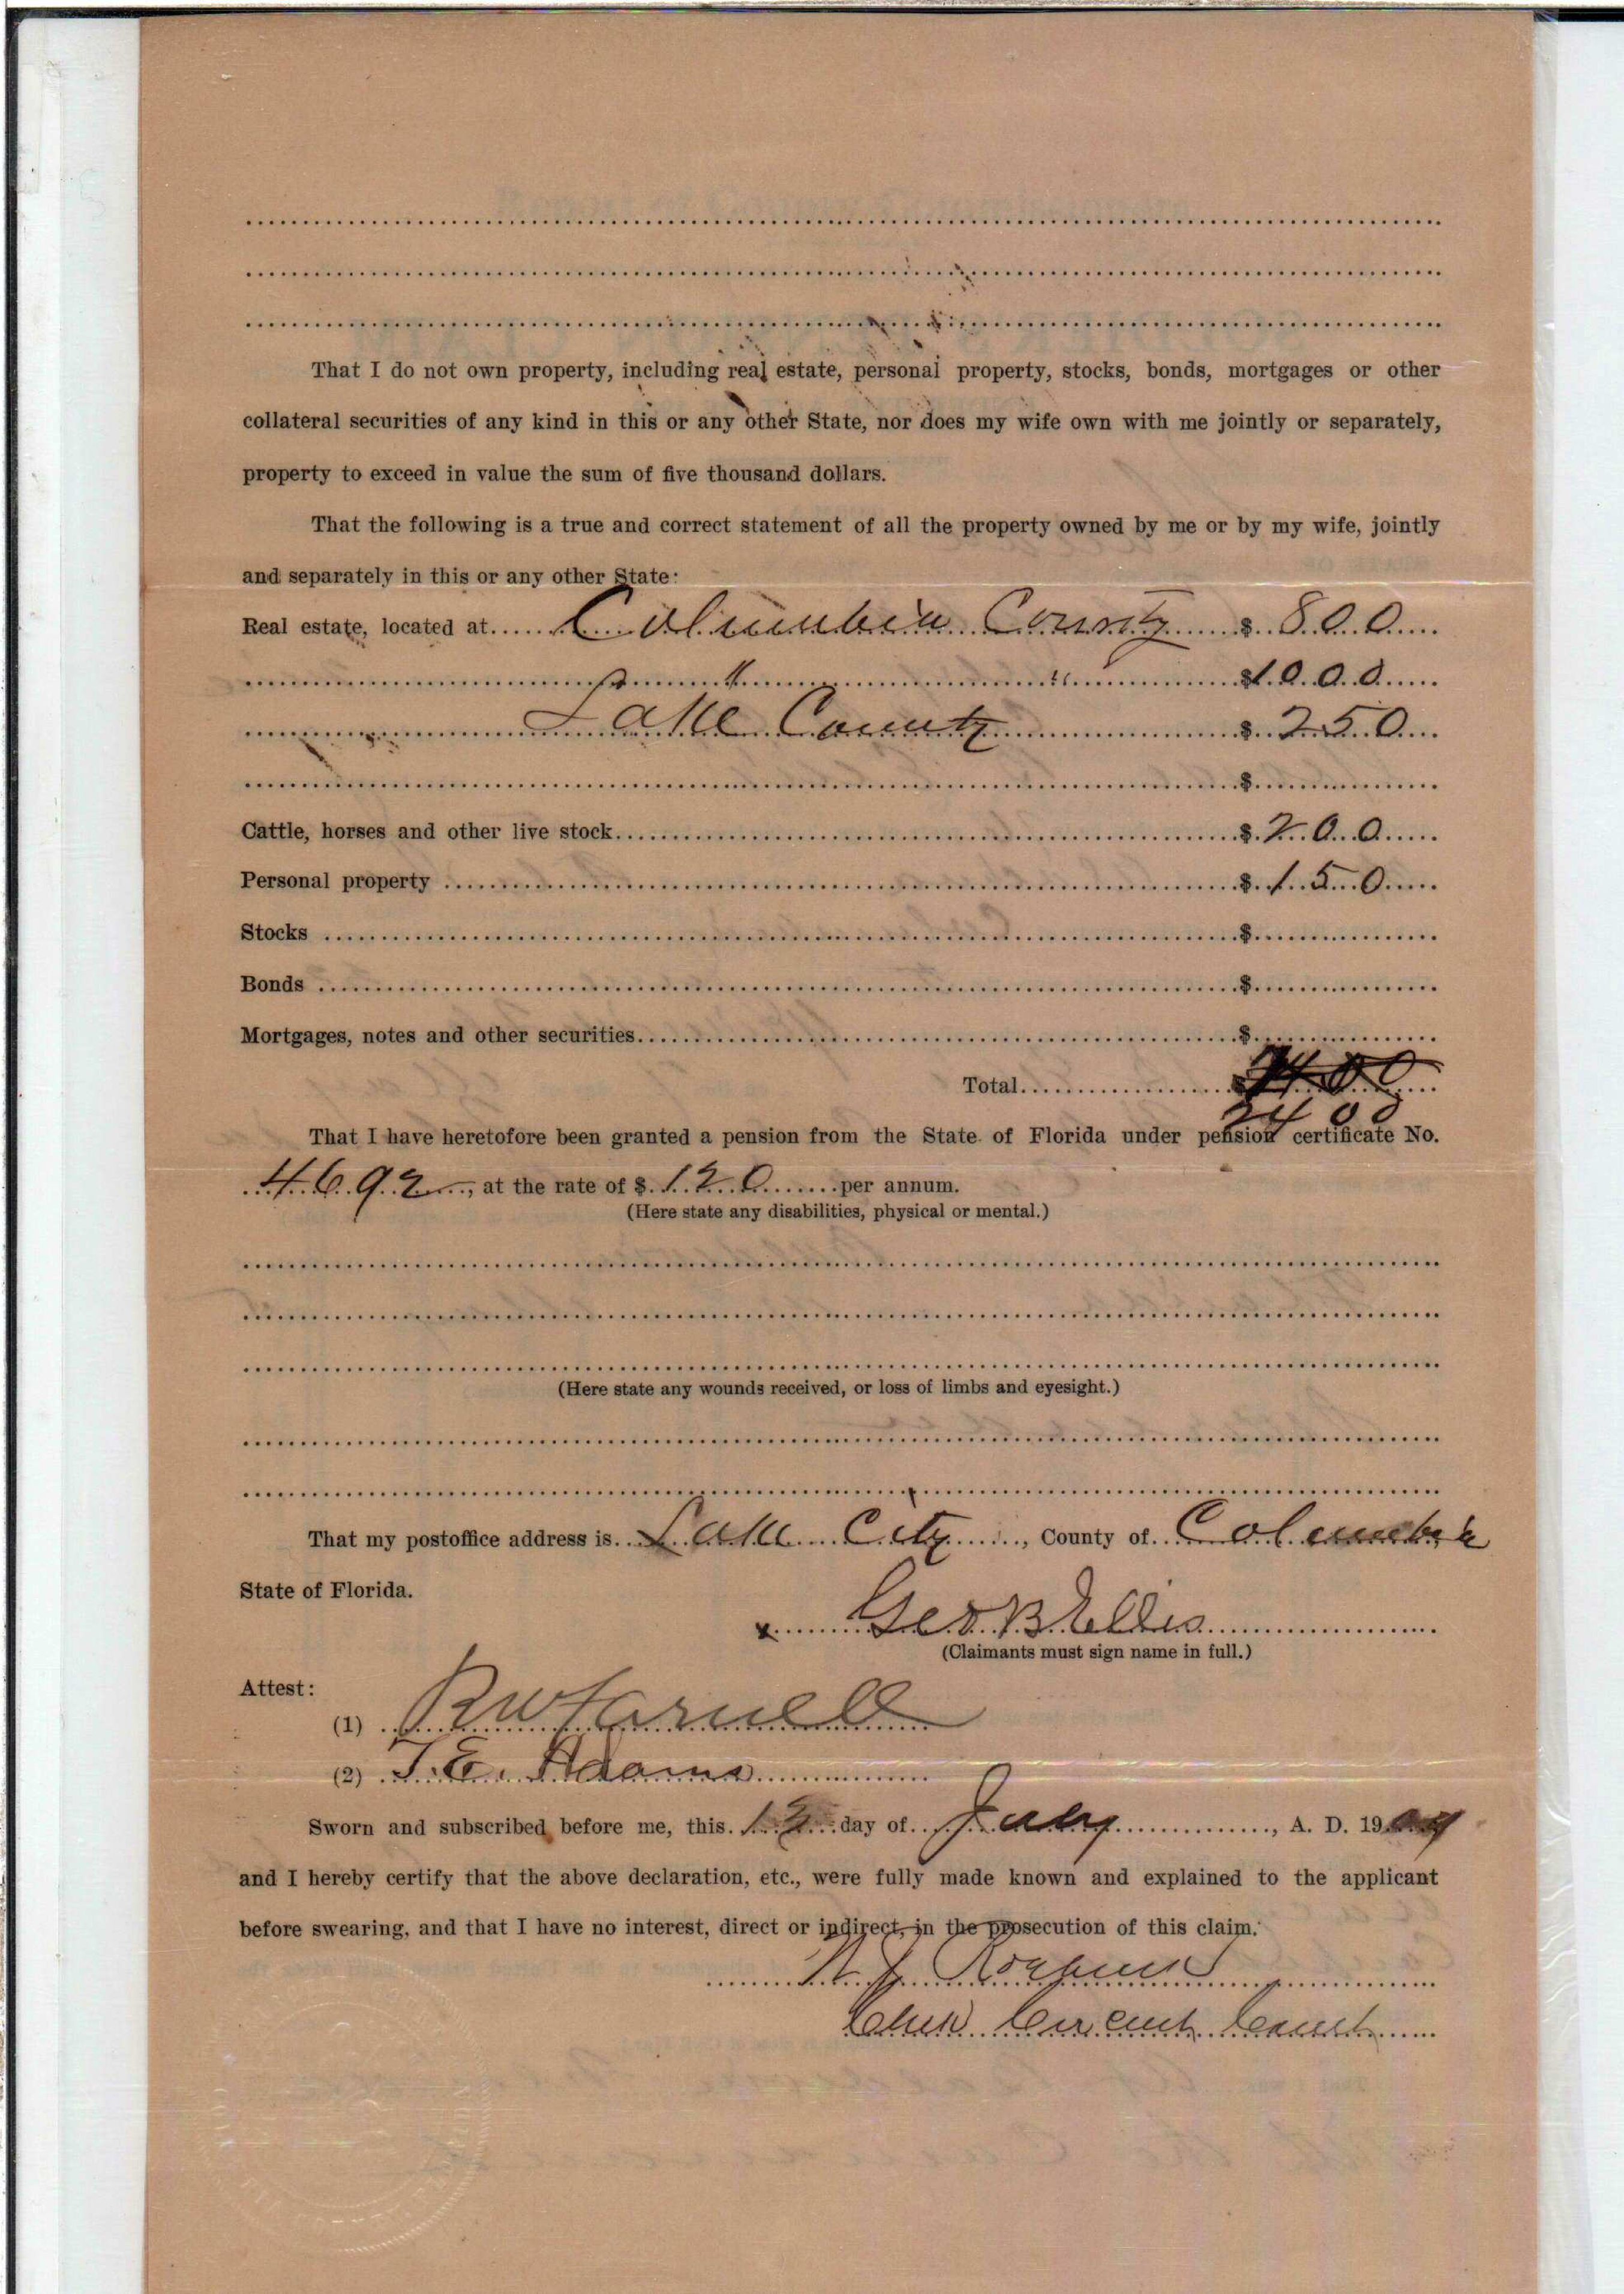 That I do not own property, including real estate, personal property, stocks, bonds, mortgages or other
collateral securities of any kind in this or any other State, nor does my wife own with me jointly or separately,
property to exceed in value the sum of five thousand dollars.
That the following is a true and correct statement of all the property owned by me or by my wife, jointly
and separately in this or any other State:
Real estate, located at Columbia County $ 800
" " $1000
Lake County $ 250
$
Cattle, horses and other live stock $ 200
Personal property $ 150
Stocks $
Bonds $
Mortgages, notes and other securities $
Total $
2400
That I have heretofore been granted a pension from the State of Florida under pension certificate No.
4692, at the rate of $ 120 per annum.
(Here state any disabilities, physical or mental.)
(Here state any wounds received, or loss of limbs and eyesight.)
That my postoffice address is Lake City, County of Columbia
State of Florida.
x Geo B Ellis
(Claimants must sign name in full.)
Attest:
(1) RW Farnell
(2) T. E. Adams
Sworn and subscribed before me, this 12 day of July, A. D. 1909
and I hereby certify that the above declaration, etc., were fully made known and explained to the applicant
before swearing, and that I have no interest, direct or indirect, in the prosecution of this claim.
Clerk Circuit Court